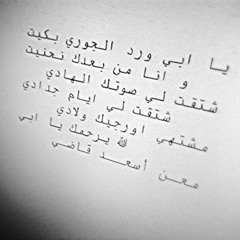 يا ابي ورد الجوري بكيت
و انا من بعدك نحنيت
شتقت لي صوتك الهادي
شتقت لي ايام جدادي
مشتهي اورجيك ولادي
الله يرحمك يا ابي
معن أسعد قاضي